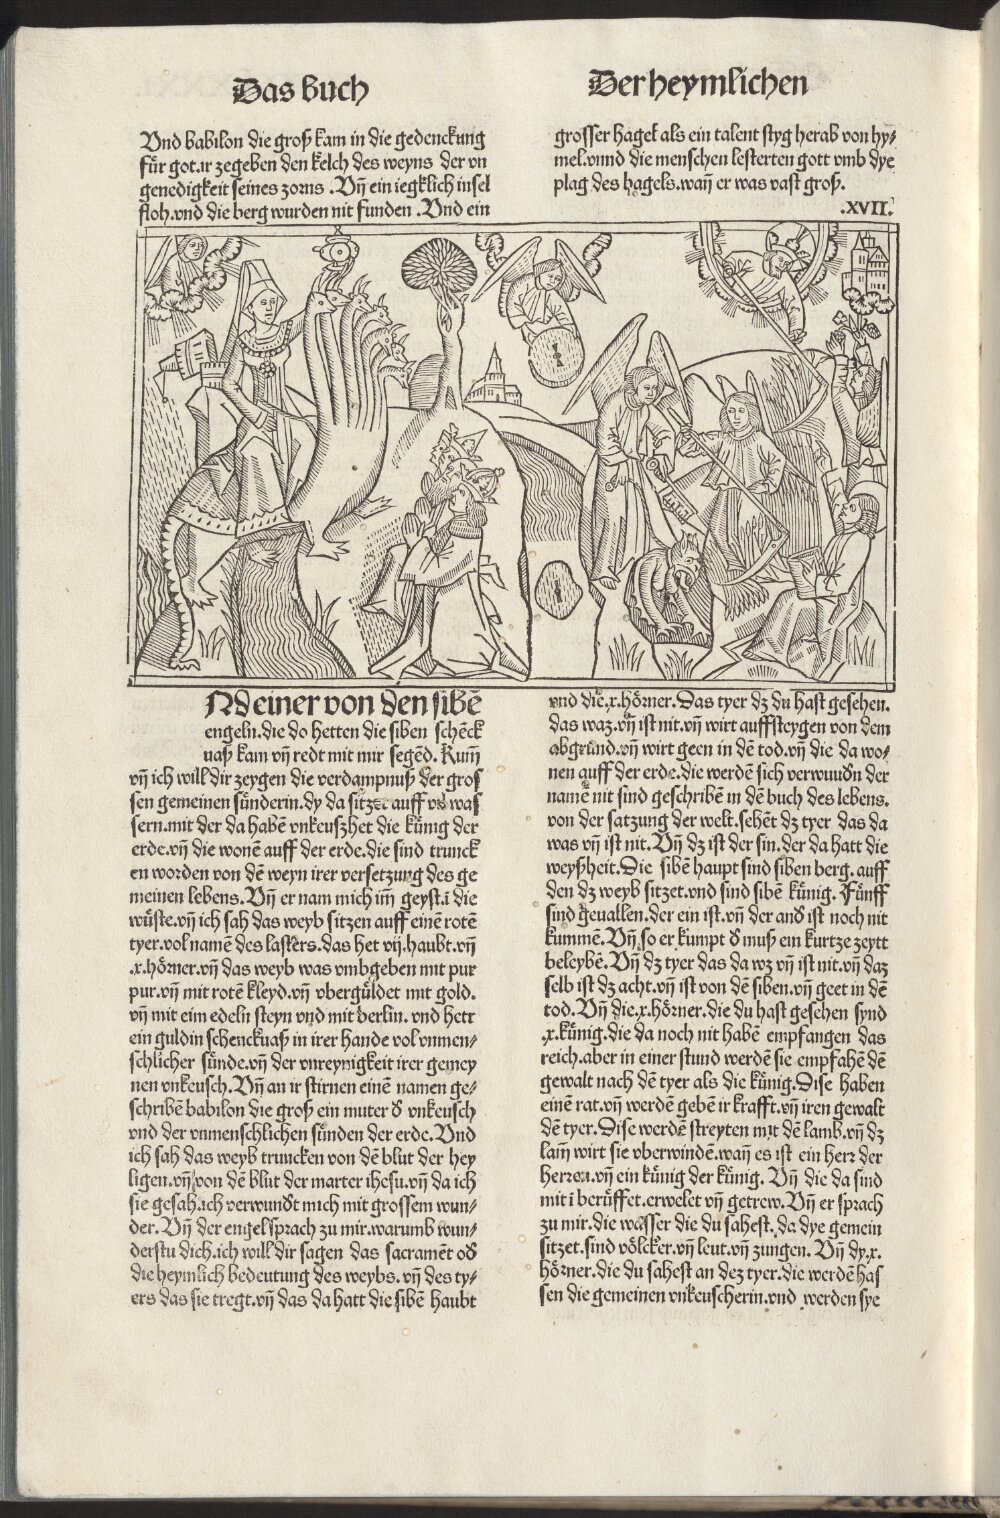 Das Buch
Der heymlichen
Vnd babilon die groß kam in die gedenckung
für got.ir zegeben den kelch des weyns der vn
genedigkeit seines zorns .Vn̄ ein iegklich insel
floh.vnd die berg wurden nit funden .Vnd ein
grosser hagel als ein talent styg herab von hy⸗
mel.vnnd die menschen lesterten gott vmb dye
plag des hagels.wan̄ er was vast groß.
.XVII.
Nd einer von den sibē
engeln.die do hetten die siben schēck
uaß kam vn̄ redt mit mir segēd. Kum̄
vn̄ ich will dir zeygen die verdampnuß der gros
sen gemeinen sünderin.dy da sitzet auff vil was
sern.mit der da habē vnkeuszhet die künig der
erde.vn̄ die wonē auff der erde.die sind trunck
en worden von dē weyn irer versetzung des ge
meinen lebens. Vn̄ er nam mich im̄ geyst.i die
wüste.vn̄ ich sah das weyb sitzen auff einē rotē
tyer.vol namē des lasters.das het vij.haubt.vn̄
.x.hörner.vn̄ das weyb was vmbgeben mit pur
pur.vn̄ mit rotē kleyd.vn̄ vbergüldet mit gold.
vn̄ mit eim edeln steyn vnd mit berlin. vnd hett
ein guldin schenckuaß in irer hande vol vnmen⸗
schlicher sünde.vn̄ der vnreynigkeit irer gemey
nen vnkeusch.Vn̄ an ir stirnen einē namen ge⸗
schribē babilon die groß ein muter d̕ vnkeusch
vnd der vnmenschlichen sünden der erde. Vnd
ich sah das weyb truncken von dē blut der hey
ligen.vn̄ von dē blut der marter ihesu.vn̄ da ich
sie gesah.ich verwund̕t mich mit grossem wun⸗
der. Vn̄ der engel sprach zu mir.warumb wun⸗
derstu dich.ich will dir sagen das sacramēt od̕
die heymlich bedeutung des weybs. vn̄ des ty⸗
ers das sie tregt.vn̄ das da hatt die sibē haubt
vnd die .x.hörner.Das tyer dz du hast gesehen.
das waz.vn̄ ist nit.vn̄ wirt auffsteygen von dem
abgrund.vn̄ wirt geen in dē tod.vn̄ die da wo⸗
nen auff der erde.die werdē sich verwund̕n der
namē nit sind geschribē in dē buch des lebens.
von der satzung der welt.sehēt dz tyer das da
was vn̄ ist nit. Vn̄ dz ist der sin.der da hatt die
weyßheit. Die sibē haupt sind siben berg. auff
den dz weyb sitzet.vnd sind sibē künig. Fünff
sind geuallen.der ein ist.vn̄ der and̕ ist noch nit
kummē. Vn̄ so er kumpt d̕ muß ein kurtze zeytt
beleybē. Vn̄ dz tyer das da wz vn̄ ist nit.vn̄ daz
selb ist dz acht.vn̄ ist von dē siben.vn̄ geet in dē
tod. Vn̄ die.x.hörner.die du hast gesehen synd
.x.künig.die da noch nit habē empfangen das
reich.aber in einer stund werdē sie empfahē dē
gewalt nach dē tyer als die künig.Dise haben
einē rat.vn̄ werdē gebē ir krafft.vn̄ iren gewalt
dē tyer.Dise werdē streyten mit dē lamb.vn̄ dz
lam̄ wirt sie vberwindē.wan̄ es ist ein herr der
herren.vn̄ ein künig der künig. Vn̄ die da sind
mit i berüffet.erwelet vn̄ getrew. Vn̄ er sprach
zu mir.die wasser die du sahest. da dye gemein
sitzet.sind völcker.vn̄ leut.vn̄ zungen. Vn̄ dy.x.
hörner.die du sahest an dez tyer.die werdē has
sen die gemeinen vnkeuscherin.vnd werden sye